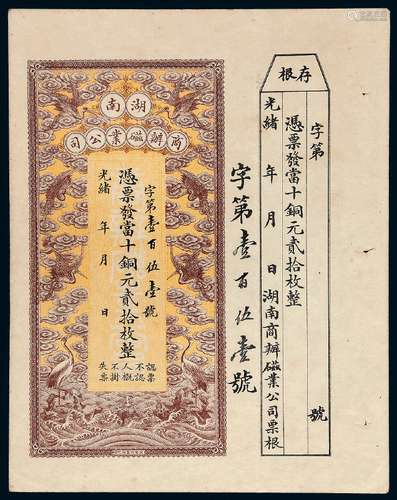 存根
字第 號
憑票發當十銅元貳拾枚整
光緒 年 月 日 湖南商辦磁業公司票根
字第壹百伍壹號
湖南
商辦磁業公司
字第壹百伍壹號
憑票發當十銅元貳拾枚整
光緒 年 月 日
認票
不認
人概
不掛
失票